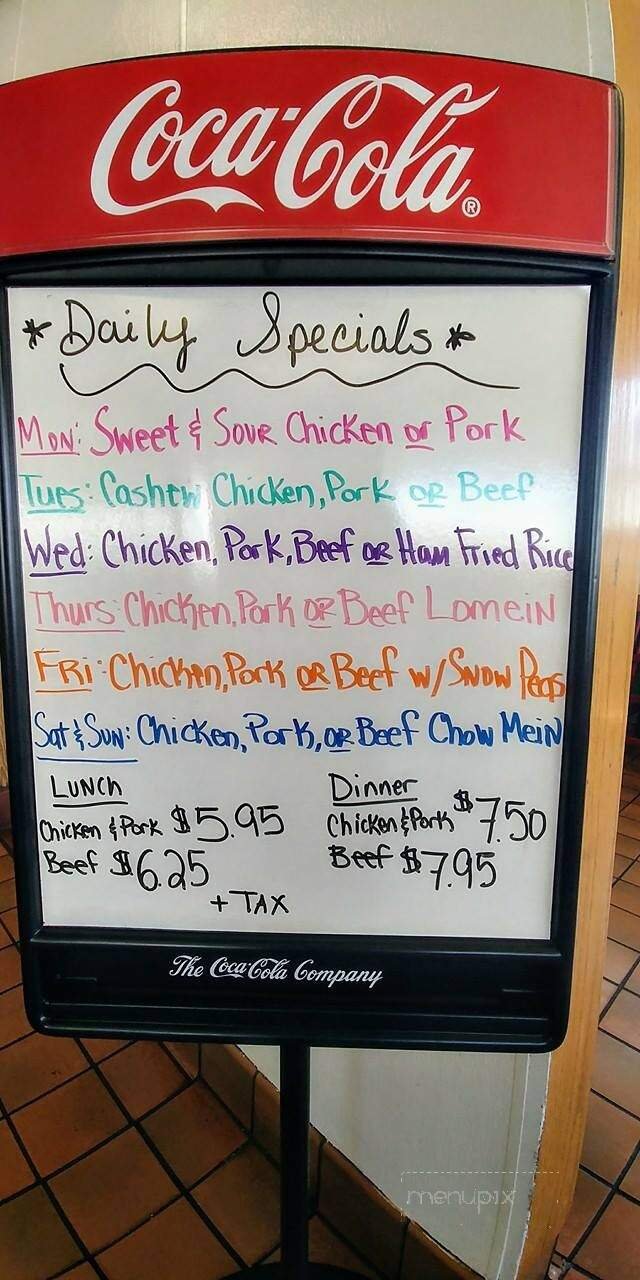 Coca-Cola®
*Daily Specials*
Mon: Sweet & Sour Chicken or Pork
Tues: Cashew Chicken, Pork or Beef
Wed: Chicken, Pork, Beef or Ham Fried Rice
Thurs: Chicken, Pork or Beef Lomein
Fri: Chicken, Pork or Beef w/ Snow Peas
Sat & Sun: Chicken, Pork, or Beef Chow Mein
Lunch
Chicken & Pork $5.95
Beef $6.25
Dinner
Chicken & Pork $7.50
Beef $7.95
+ TAX
The Coca-Cola Company
menupix